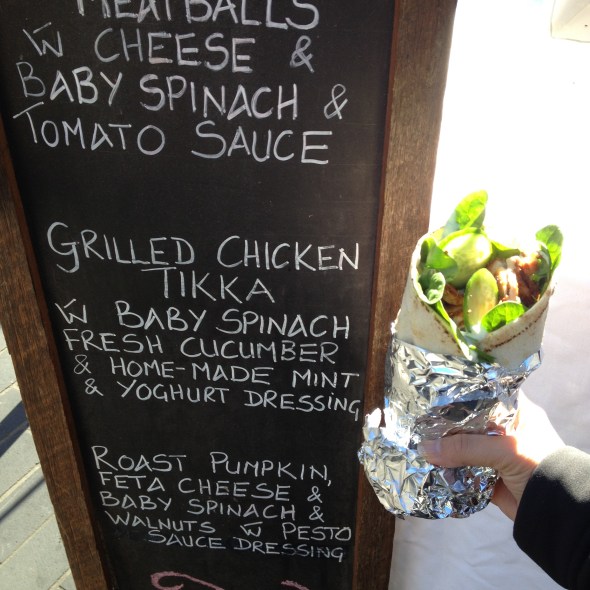 MEATBALLS
W CHEESE &
BABY SPINACH &
TOMATO SAUCE
GRILLED CHICKEN
TIKKA
W BABY SPINACH
FRESH CUCUMBER
& HOME-MADE MINT
& YOGHURT DRESSING
ROAST PUMPKIN,
FETA CHEESE &
BABY SPINACH &
WALNUTS W PESTO
SAUCE DRESSING